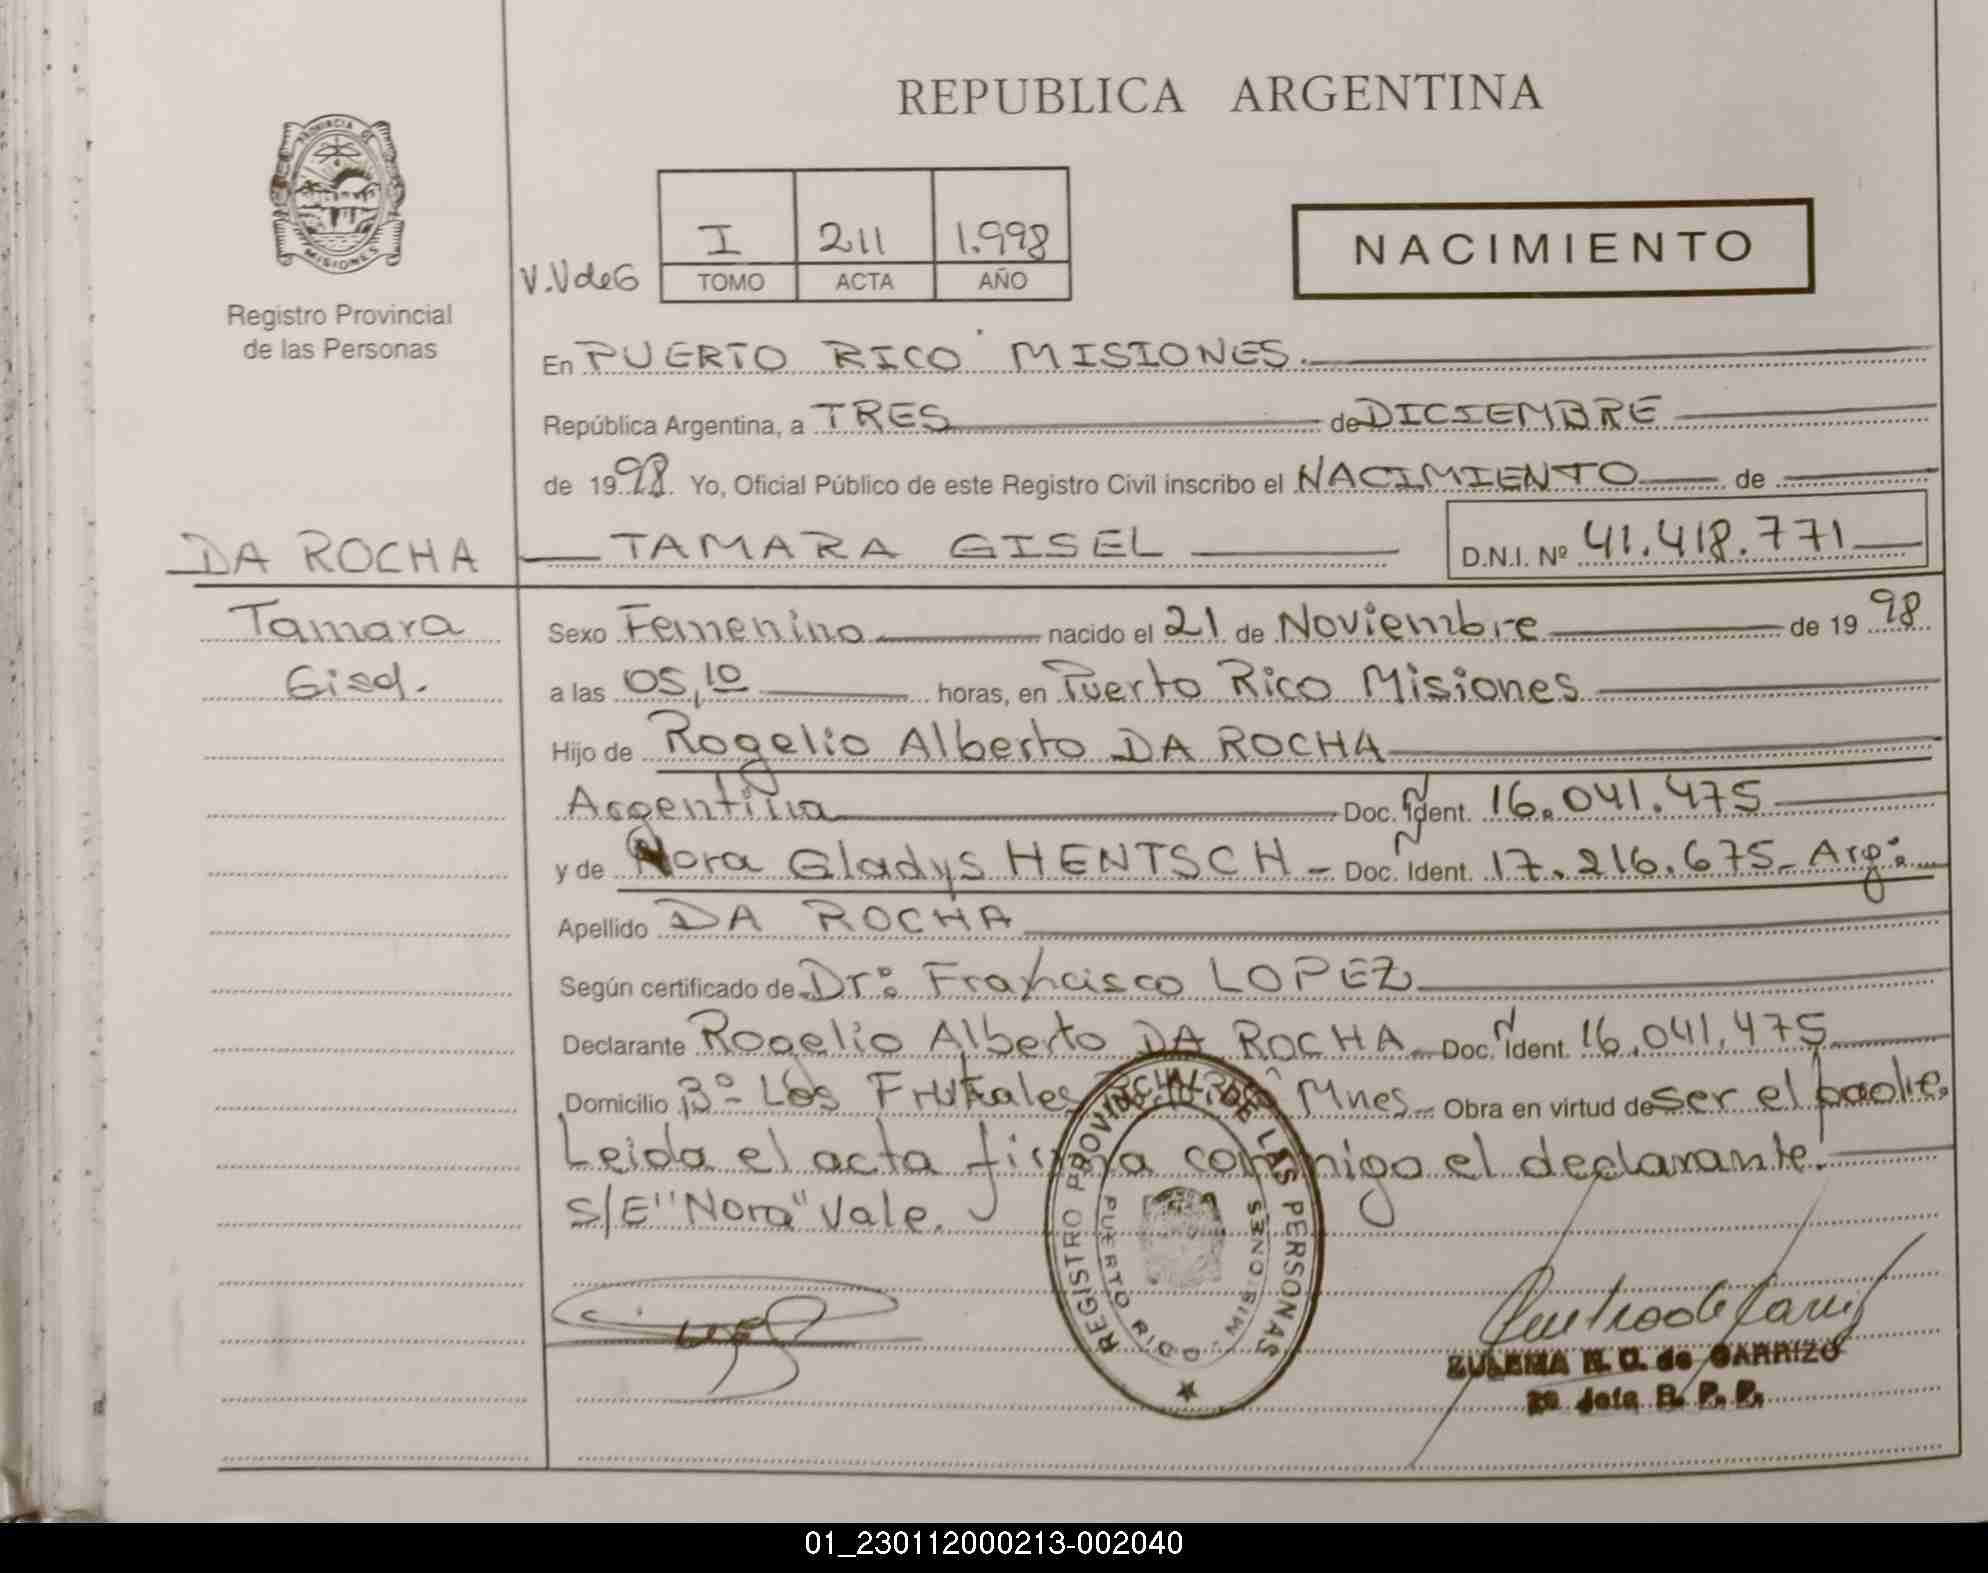 REPUBLICA ARGENTINA
PROVINCIA DE
MISIONES
Registro Provincial
de las Personas
V.VdeG
I 211 1.998
TOMO ACTA AÑO
NACIMIENTO
En PUERTO RICO MISIONES.
República Argentina, a TRES de DICIEMBRE
de 1998. Yo, Oficial Público de este Registro Civil inscribo el NACIMIENTO de
DA ROCHA TAMARA GISEL D.N.I. Nº 41.418.771
Tamara
Gisel.
Sexo Femenino nacido el 21 de Noviembre de 1998
a las 05,10 horas, en Puerto Rico Misiones
Hijo de Rogelio Alberto DA ROCHA
Argentina Doc. Ident. 16.041.475
y de Nora Gladys HENTSCH - Doc. Ident. 17.216.675- Arg:
Apellido DA ROCHA
Según certificado de Dr: Francisco LOPEZ
Declarante Rogelio Alberto DA ROCHA Doc. Ident. 16.041.475
Domicilio Bº- Los Frutales Mnes. Obra en virtud de ser el padre.
Leida el acta firma conmigo el declarante.
S/E "Nora" Vale.
REGISTRO PROVINCIAL DE LAS PERSONAS
PUERTO RICO - MISIONES
ZULEMA N. C. de CARRIZO
2a Jefa R. P. P.
01_230112000213-002040